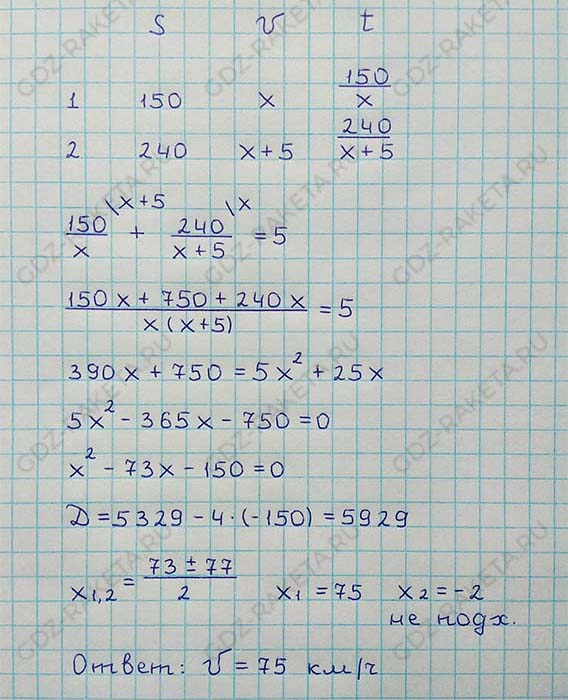 S V t
1 150 x 150/x
2 240 x+5 240/(x+5)
150/x \x+5 + 240/(x+5) \x = 5
(150x + 750 + 240x)/(x(x+5)) = 5
390x + 750 = 5x² + 25x
5x² - 365x - 750 = 0
x² - 73x - 150 = 0
Д = 5329 - 4·(-150) = 5929
x1,2 = (73 ± 77)/2 x1 = 75 x2 = -2
не подх.
Ответ: V = 75 км/ч
GDZ-RAKETA.RU